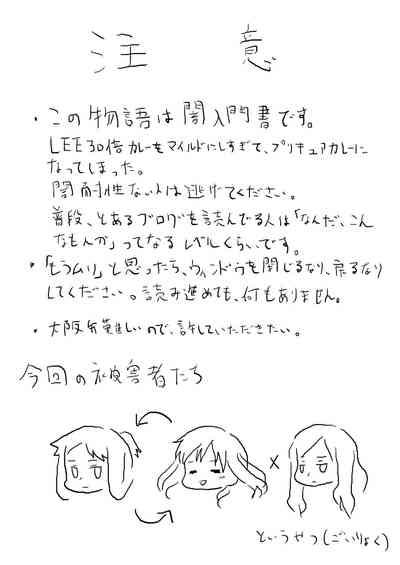 注 意
・この物語は闇入門書です。
LEE30倍カレーをマイルドにしすぎて、プリキュアカレーに
なってしまった。
闇耐性ない人は逃げてください。
普段、とあるブログを読んでる人は「なんだ、こん
なもんか」ってなるレベルくらいです。
・「もうムリ」と思ったら、ウィンドウを閉じるなり、戻るなり
してください。読み進めても、何もありません。
・大阪弁難しいので、許していただきたい。
今回の被害者たち
×
というやつ(ごいりょく)